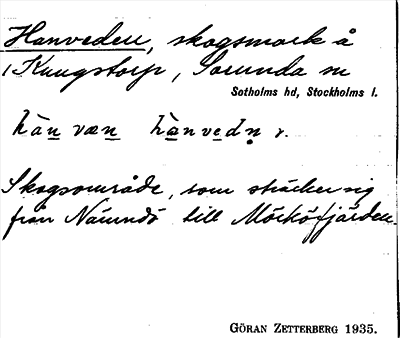 Hanveden, skogsmark å
/ Kungstorp, Sorunda sn
Sotholms hd, Stockholms l.
hàn væn hànvedn̥ r.
Skogsområde, som sträcker sig
från Nåttarö till Mörköfjärden.
GÖRAN ZETTERBERG 1935.